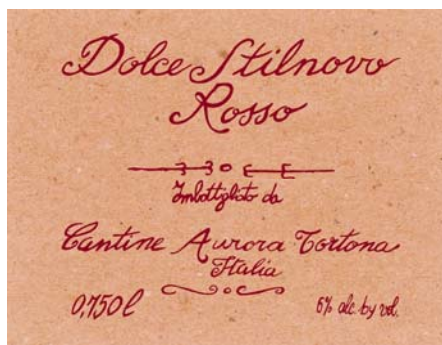 Dolce Stilnovo
Rosso
Imbottigliato da
Cantine Aurora Tortona
Italia
0,750 l
6% alc. by vol.